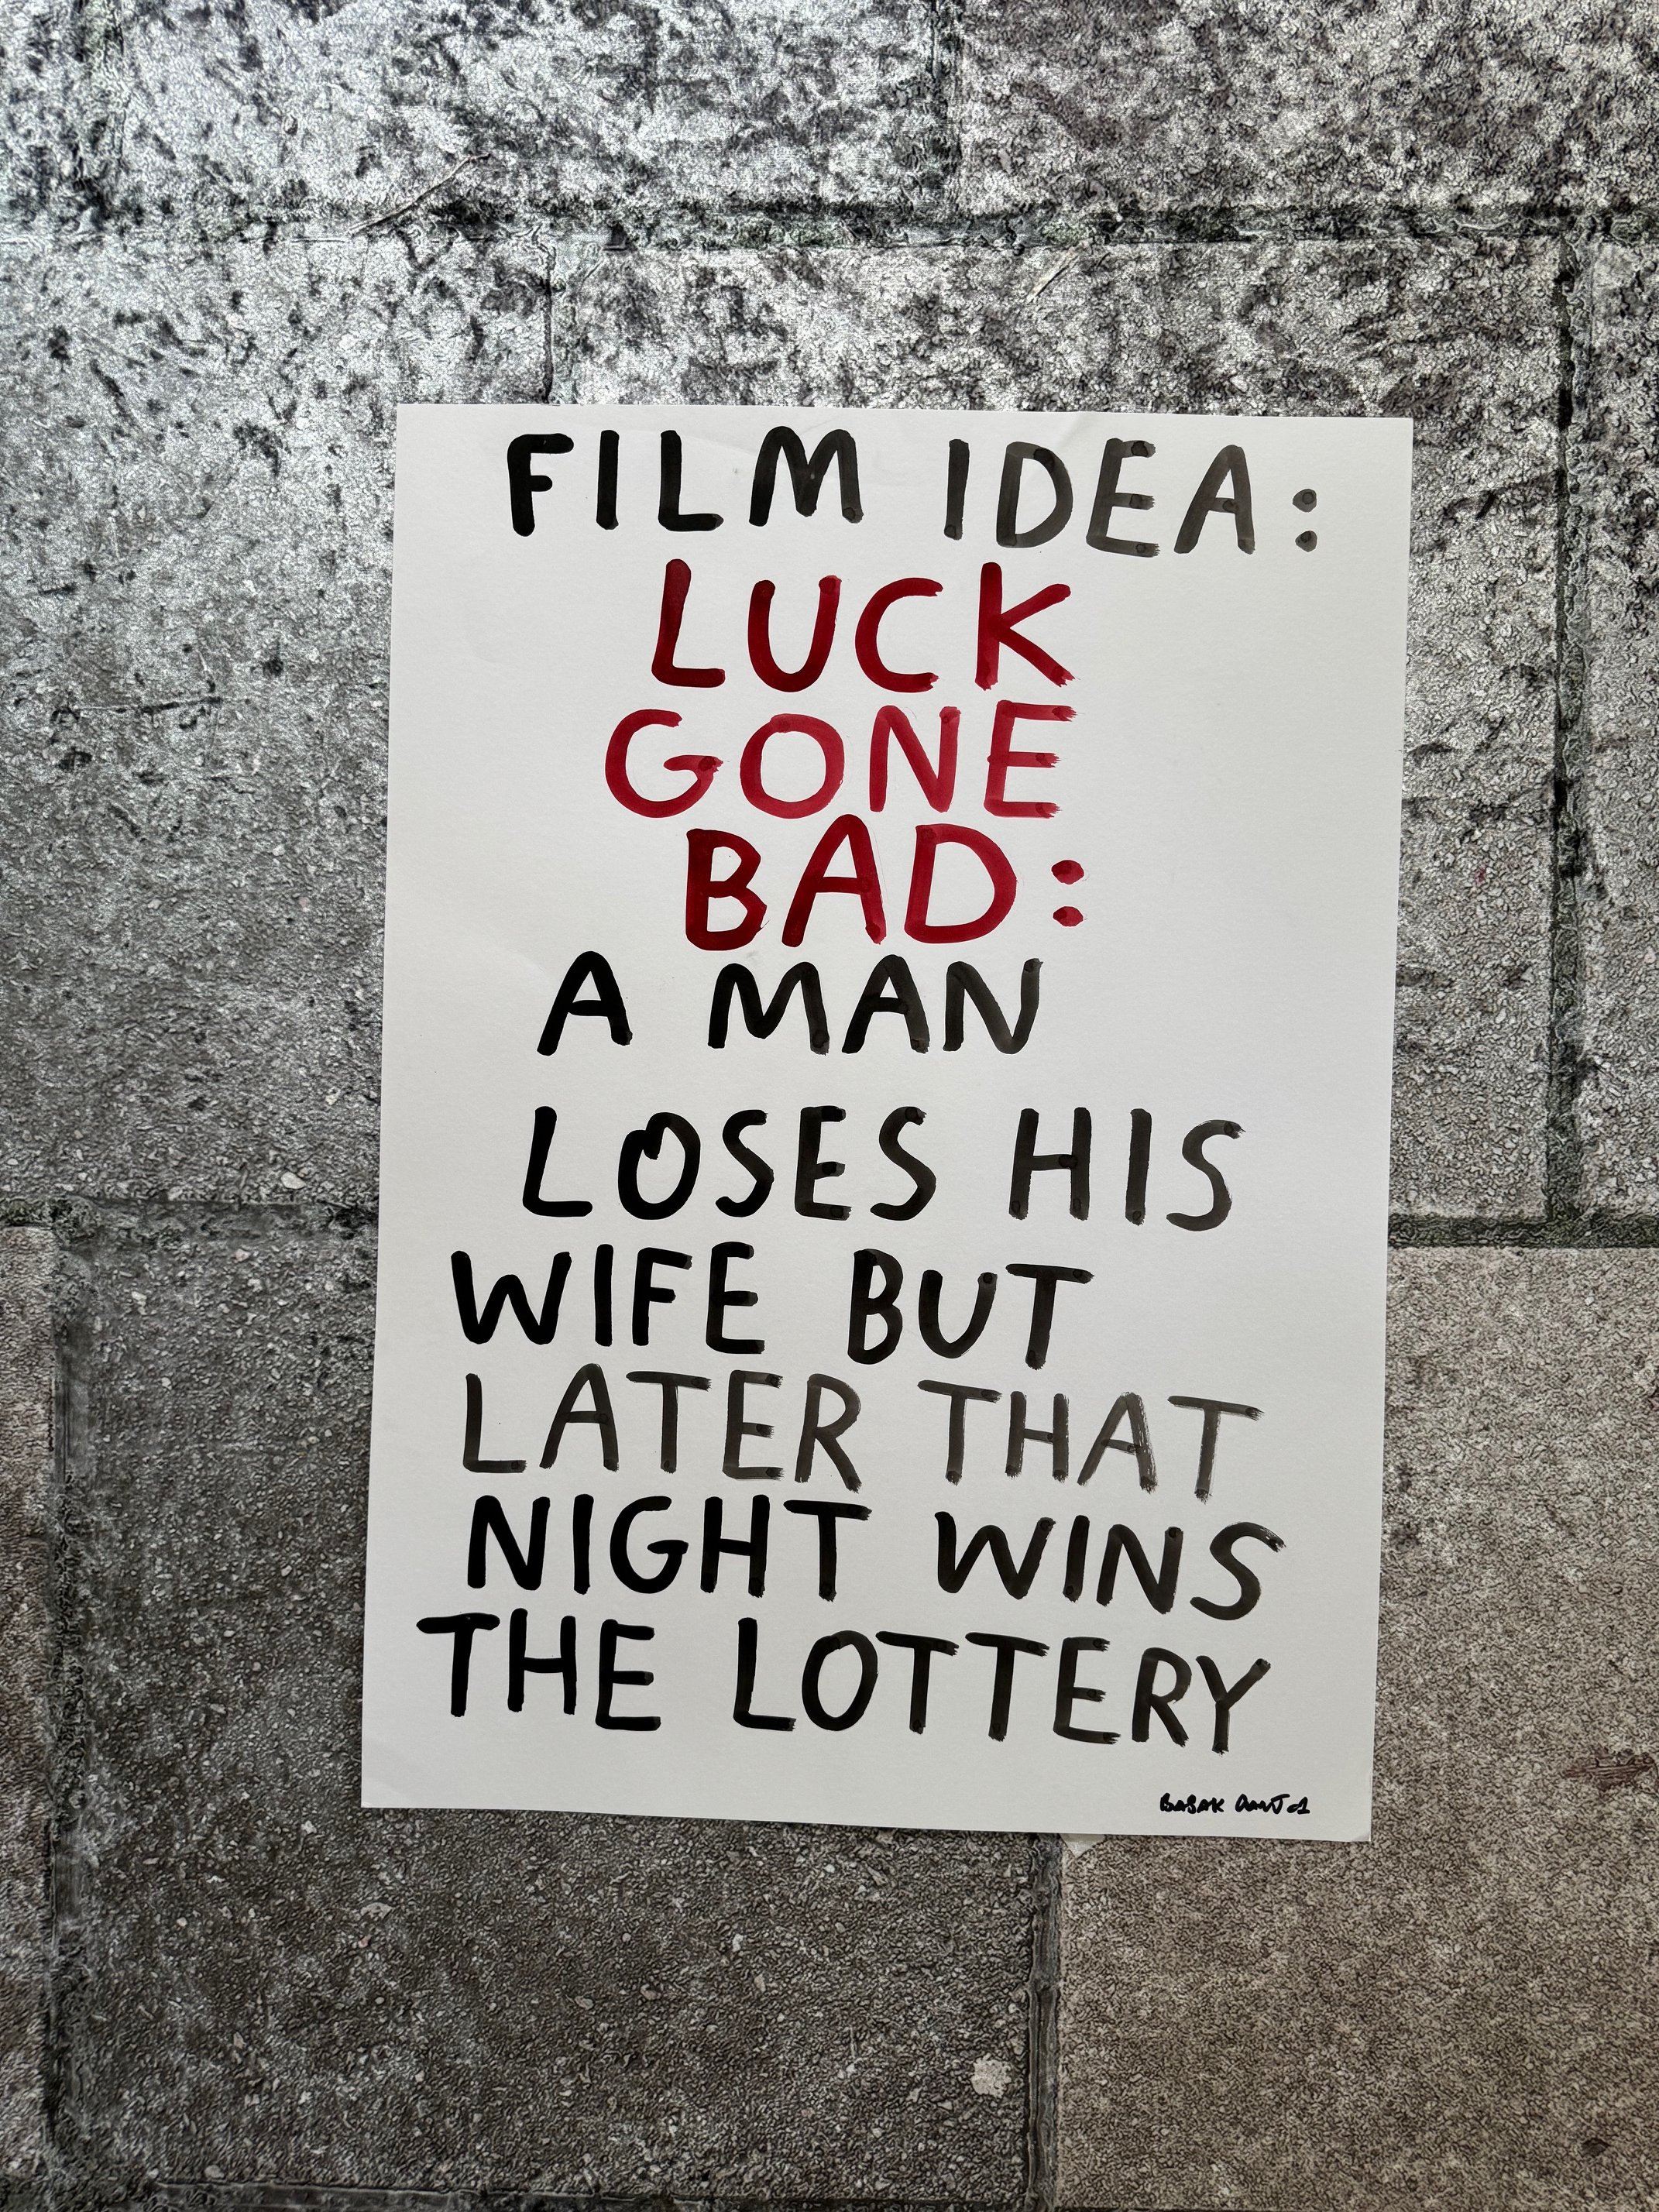 FILM IDEA:
LUCK
GONE
BAD:
A MAN
LOSES HIS
WIFE BUT
LATER THAT
NIGHT WINS
THE LOTTERY
BABAK